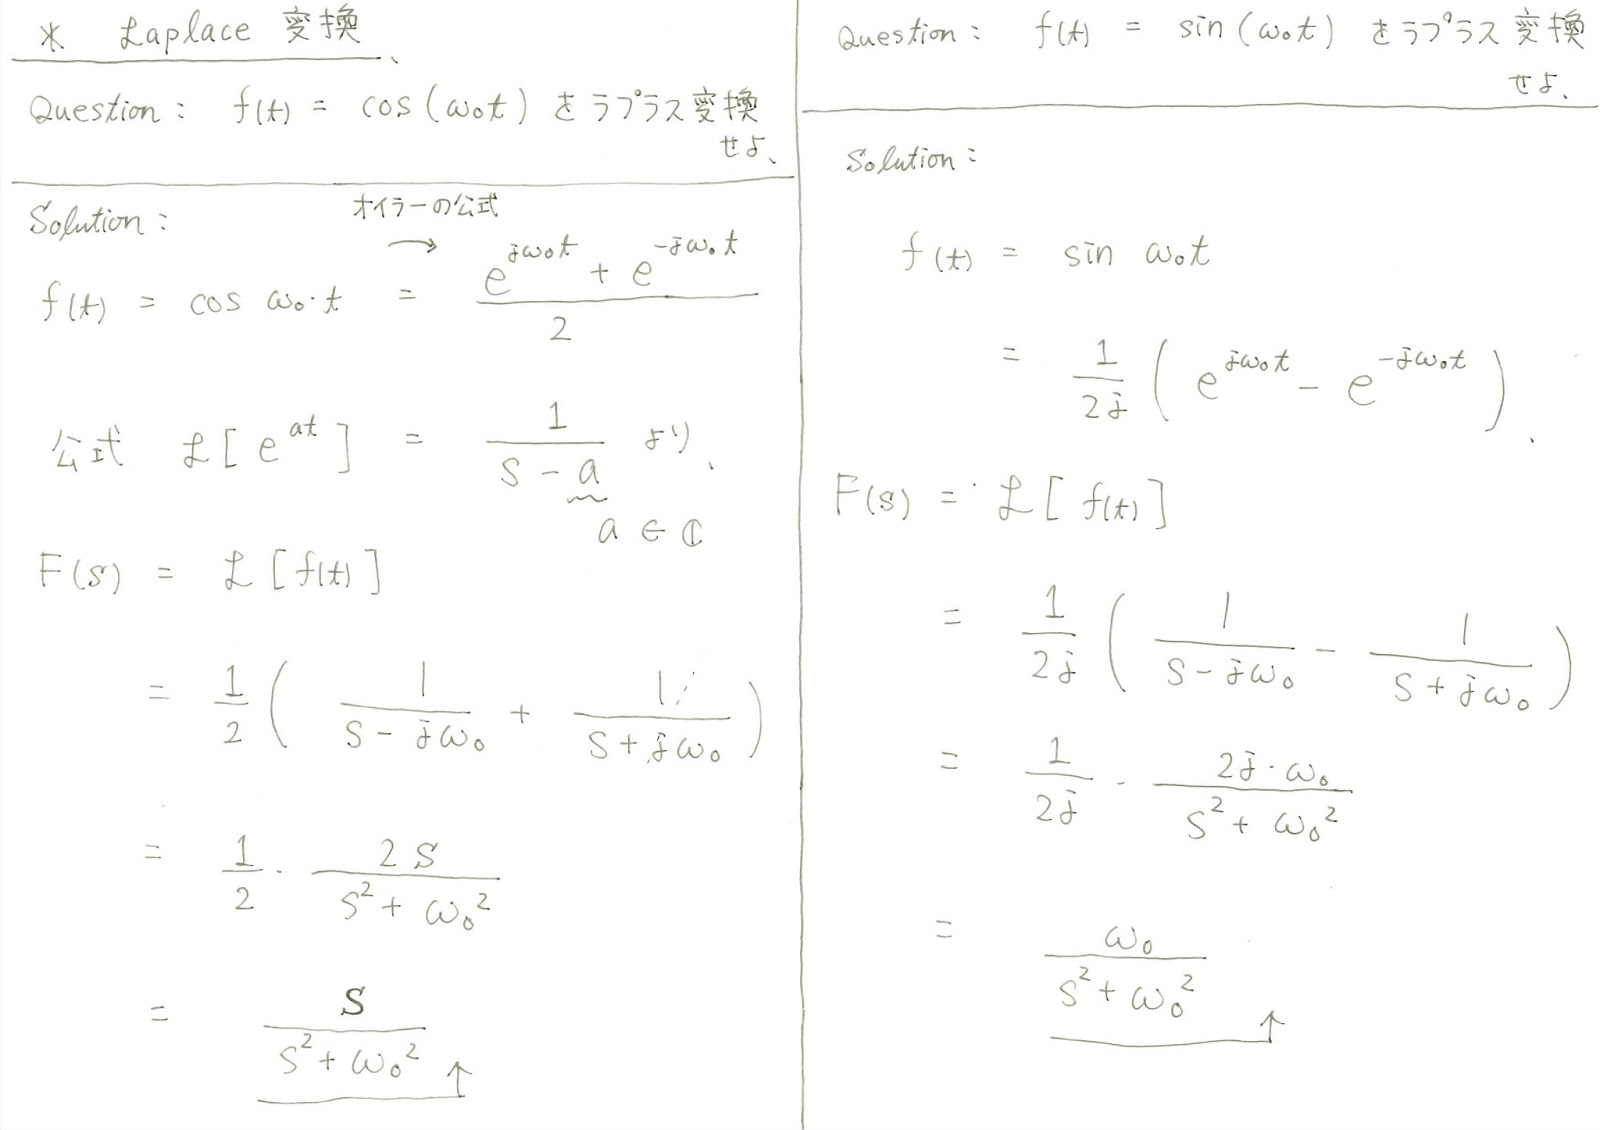 * Laplace 変換
Question: f(t) = cos(ω₀t) をラプラス変換
せよ、
Solution:
オイラーの公式
→
f(t) = cos ω₀·t = (e^{jω₀t} + e^{-jω₀t}) / 2
公式 ℒ[e^{at}] = 1/(s - a) より、
a ∈ ℂ
F(s) = ℒ[f(t)]
= 1/2 ( 1/(s - jω₀) + 1/(s + jω₀) )
= 1/2 · 2s/(s² + ω₀²)
= s/(s² + ω₀²) ↑
Question: f(t) = sin(ω₀t) をラプラス変換
せよ、
Solution:
f(t) = sin ω₀t
= 1/2j ( e^{jω₀t} - e^{-jω₀t} ).
F(s) = ℒ[f(t)]
= 1/2j ( 1/(s - jω₀) - 1/(s + jω₀) )
= 1/2j · 2j·ω₀/(s² + ω₀²)
= ω₀/(s² + ω₀²) ↑